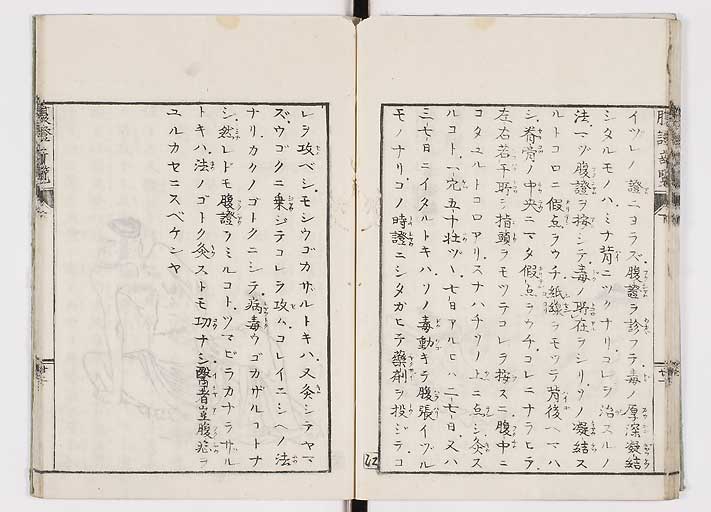 イヅレノ證ニヨラズ腹證ヲ診フラ毒ノ厚深凝結
シタルモノハミナ背ニツクナリコレヲ治スルノ
法マヅ腹證ヲ按シテ毒ノ所在ヲシリソノ凝結ス
ルトコロニ假点ヲウチ紙線ヲモツテ背後ヘマハ
シ脊骨ノ中央ニマタ假点ヲウチコレニナラヒテ
左右若干所ヲ指頭ヲモツテコレヲ按スニ腹中ニ
コタユルトコロアリスナハチソノ上ニ点シ灸ス
ルコト一穴五十壮ヅヽ七日アルヒハ二七日又ハ
三七日ニイタルトキハソノ毒動キテ腹張イヅル
モノナリコノ時證ニシタガヒテ藥剤ヲ投ジテコ
レヲ攻ベシモシウゴカザルトキハ又灸シテヤマ
ズウゴクニ乗ジテコレヲ攻ムコレイニシヘノ法
ナリカクノゴトクニシテ病毒ウゴカザルコトナ
シ然レドモ腹證ヲミルコトツマビラカナラザル
トキハ法ノゴトク灸ストモ功ナシ醫者豈腹診ヲ
ユルカセニスベケンヤ
42